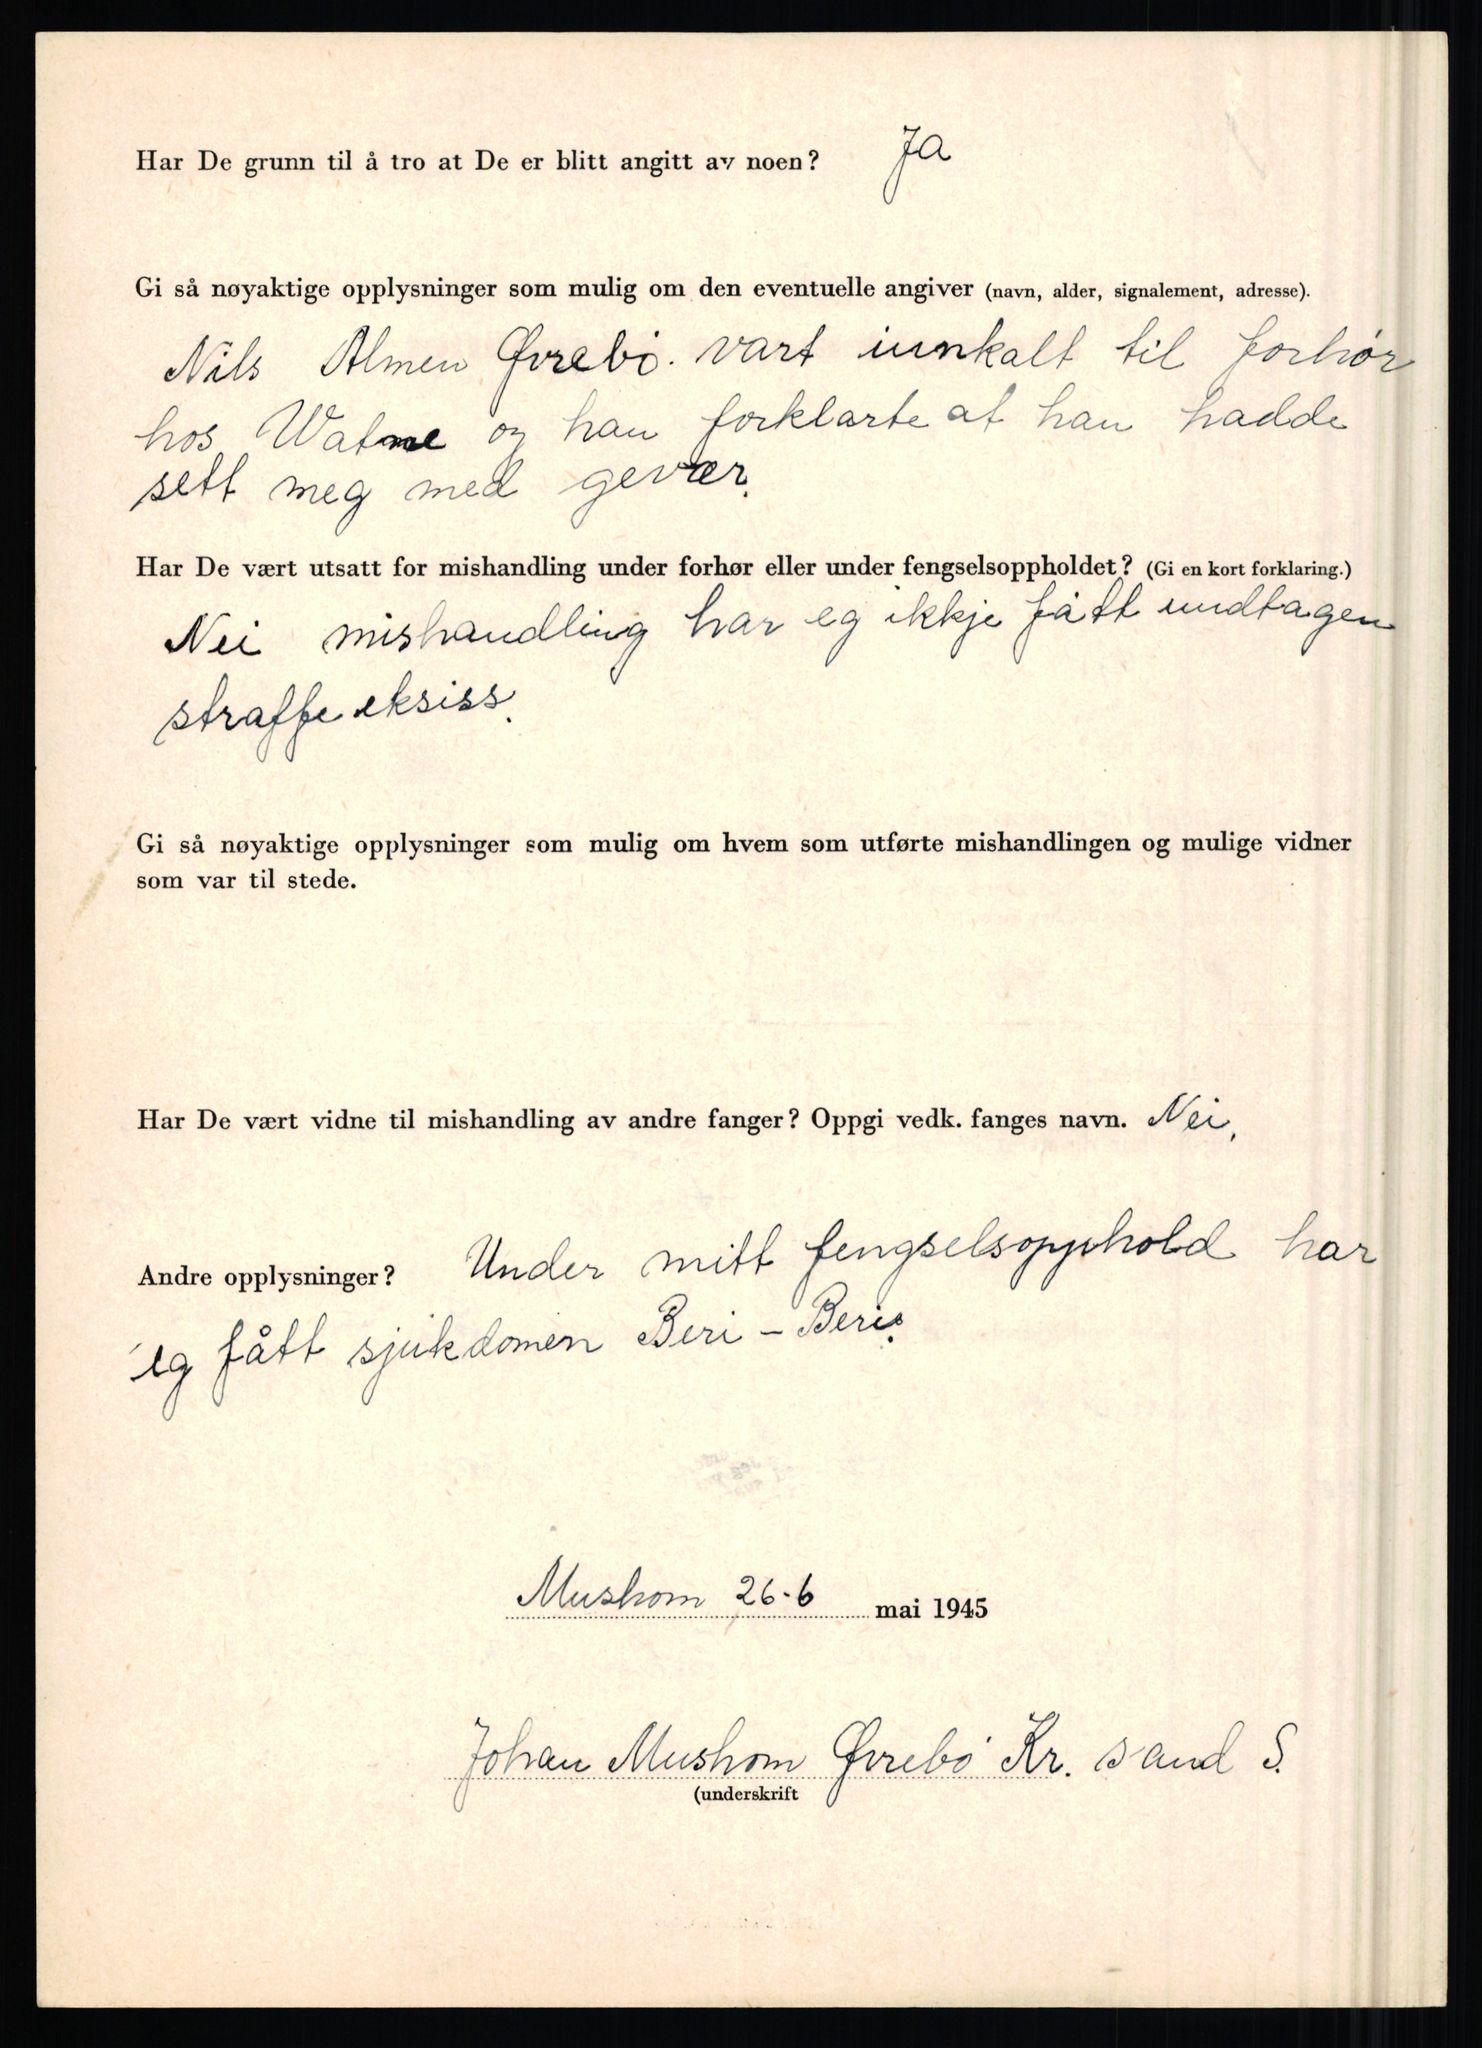 Har De grunn til å tro at De er blitt angitt av noen? Ja
Gi så nøyaktige opplysninger som mulig om den eventuelle angiver (navn, alder, signalement, adresse).
Nils Almen Øvrebö. vart innkalt til forhör
hos Watne og han forklarte at han hadde
sett meg med gevær.
Har De vært utsatt for mishandling under forhør eller under fengselsoppholdet? (Gi en kort forklaring.)
Nei mishandling har eg ikkje fått undtagen
straffe eksiss.
Gi så nøyaktige opplysninger som mulig om hvem som utførte mishandlingen og mulige vidner
som var til stede.
Har De vært vidne til mishandling av andre fanger? Oppgi vedk. fanges navn. Nei.
Andre opplysninger? Under mitt fengselsopphold har
eg fått sjukdomen Beri - Beri.
Mushom 26-6 mai 1945
Johan Mushom Øvrebö Kr. sand S.
(underskrift